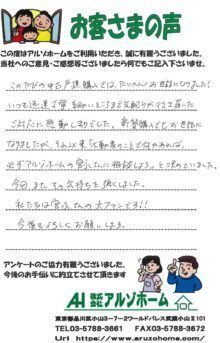 お客さまの声
この度はアルゾホームをご利用いただき、誠に有難うございました。
当社へのご意見・ご感想等ございましたら何でもご記入下さいませ。
このたびの中古戸建購入では、たいへんお世話になりました!
いつも迅速丁寧 細かいところまで気配りが行き届いた
ご対応に感動しきりでした。新築購入でもお世話に
なりましたが、それ以来「不動産のことで何かあれば、
必ずアルゾホームの宮さんに相談しよう」と決めていました。
今回、またその気持ちを強くしました。
私たちは宮さんの大ファンです!!
今後もよろしくお願いします。
アンケートのご協力有難うございました。
今後のお手伝いに役立てさせて頂きます
AH 株式会社 アルゾホーム
東京都品川区小山3-7-2ワールドパレス武蔵小山Ⅱ101
TEL03-5788-3661 FAX03-5788-3672
Url https://www.aruzohome.com/